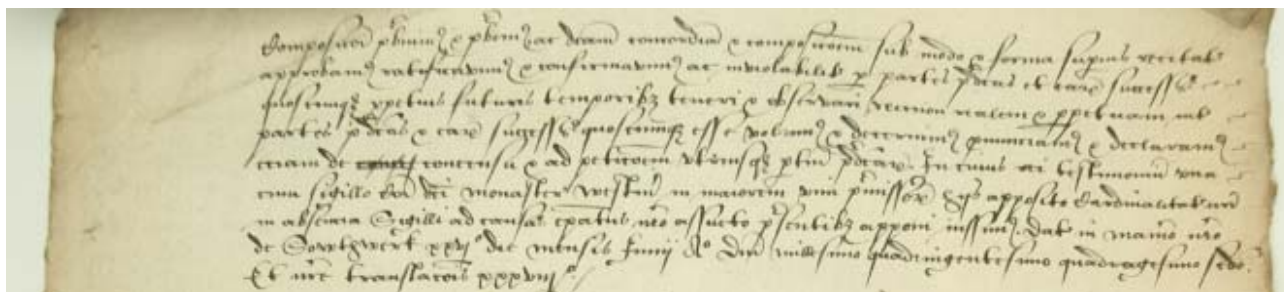 composicōi ... ac dēam concordiā & compositoem sub modo & forma superius recitat
approbam⁹ ratificavim⁹ & confirmavim⁹ ac inviolabilit p partes pdcas et eaꝝ success
quoscumqꝫ ppetuis futuris temporibꝫ teneri & observari necnon realem & ppetuam int
partes pdcas & eaꝝ success quoscumqꝫ esse volum⁹ & decernim⁹ pnunciam⁹ & declaram⁹
eciam de consensu & ad peticoem utriusqꝫ ptiū pdcaꝝ. In cuius rei testimoniū una
cum sigillo monaster Westm in maiorem pmissoꝝ apposito Cardinalitat nr̄i
in absencia Sigilli ad causas nr̄o assueto psentibꝫ apponi iussim⁹. Dat in man̄io nr̄o
de xxvjº die mensis Junii Aº Dni millesimo quadringentesimo quadragesimo scdo.
Et nr̄e translacōis xxxviijº.